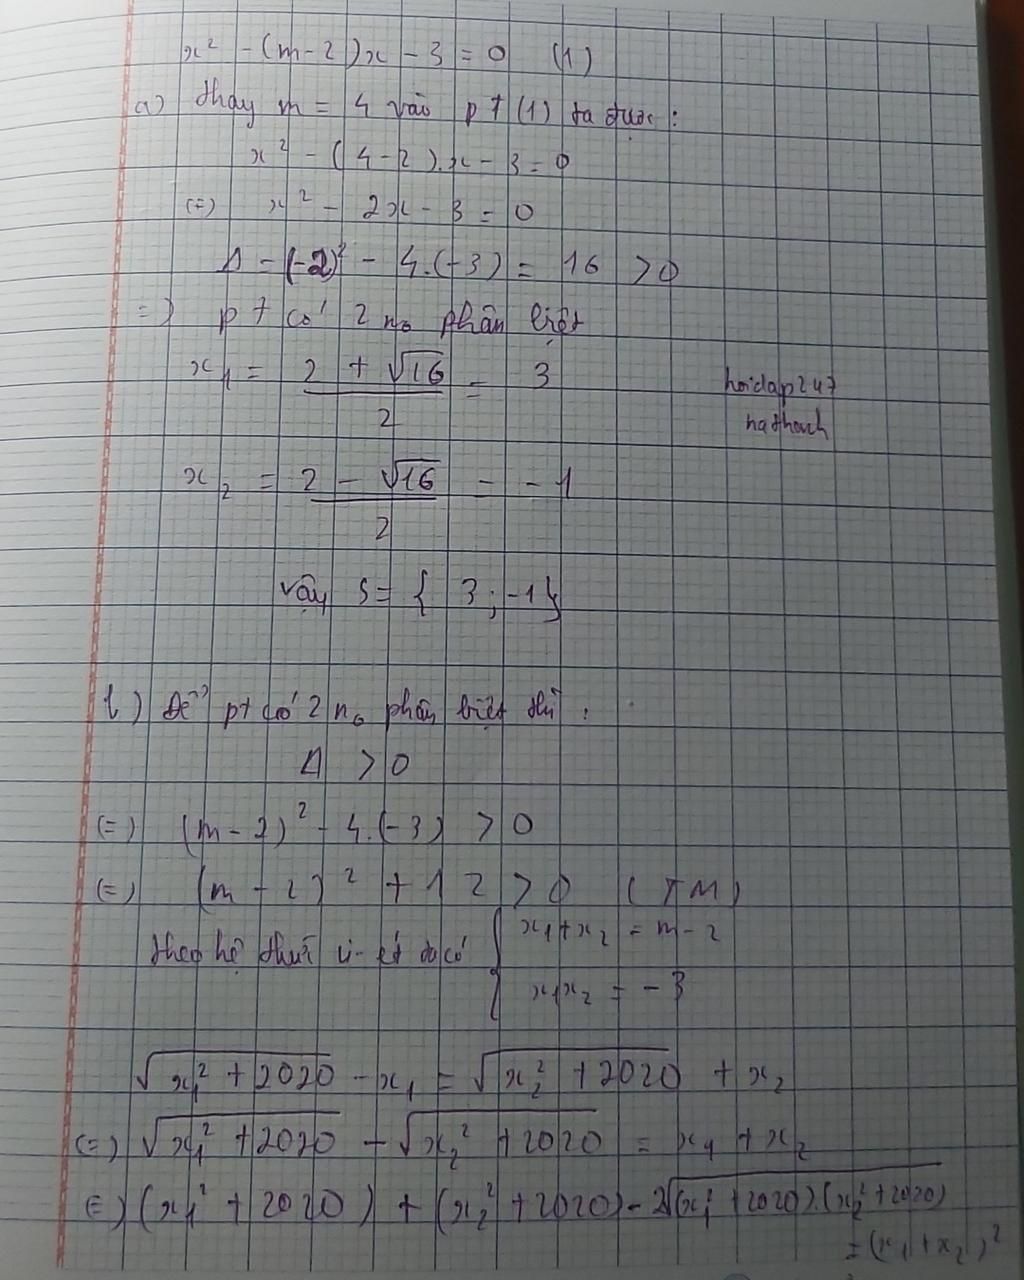 x² - (m-2)x - 3 = 0 (1)
a) thay m = 4 vào pt (1) ta được:
x² - (4-2).x - 3 = 0
(=) x² - 2x - 3 = 0
Δ = (-2)² - 4.(-3) = 16 > 0
=) pt có 2 no phân biệt
x₁ = (2 + √16)/2 = 3
hoidap247
hathanh
x₂ = (2 - √16)/2 = -1
vậy S = { 3 ; -1 }
b) Để pt có 2 no phân biệt thì :
Δ > 0
(=) (m-2)² - 4.(-3) > 0
(=) (m-2)² + 12 > 0 (TM)
theo hệ thức vi-ét có { x₁+x₂ = m-2
x₁x₂ = -3
√(x₁² + 2020) - x₁ = √(x₂² + 2020) + x₂
(=) √(x₁² + 2020) - √(x₂² + 2020) = x₁ + x₂
(=) (x₁² + 2020) + (x₂² + 2020) - 2√((x₁² + 2020).(x₂² + 2020))
= (x₁ + x₂)²